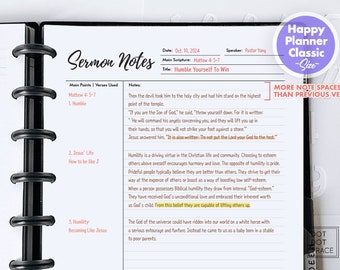 Happy
Planner
Classic
~Size~
Sermon Notes
Date: Oct. 10, 2024 Speaker: Pastor Yang
Main Scripture: Mattew 4: 5-7
Title: Humble Yourself To Win
MORE NOTE SPACES
THAN PREVIOUS VE
Main Points | Verses Used
Notes:
Mattew 4: 5-7
1. Humble
Then the devil took him to the holy city and had him stand on the highest
point of the temple.
"If you are the Son of God," he said, "throw yourself down. For it is written:
" 'He will command his angels concerning you, and they will lift you up in
their hands, so that you will not strike your foot against a stone.'
Jesus answered him, "It is also written: 'Do not put the Lord your God to the test.'"
2. Jesus' Life
How to be like 2
Humility is a driving virtue in the Christian life and community. Choosing to esteem
others above oneself encourages harmony and love. The opposite of humility is pride.
Prideful people typically believe they are better than others. They strive to get their
way at the expense of others or boast as a way of boosting low self-esteem.
When a person possesses Biblical humility they draw from internal "God-esteem."
They have received God's unconditional love and embraced their inherent worth
as God's child. From this belief they are capable of lifting others up.
3. Humility:
Becoming Like Jesus
The God of the universe could have ridden into our world on a white horse with
a serious entourage and fanfare. Instead he came to us as a baby born in a stable
to poor parents.
DOT
DOT
GRACE